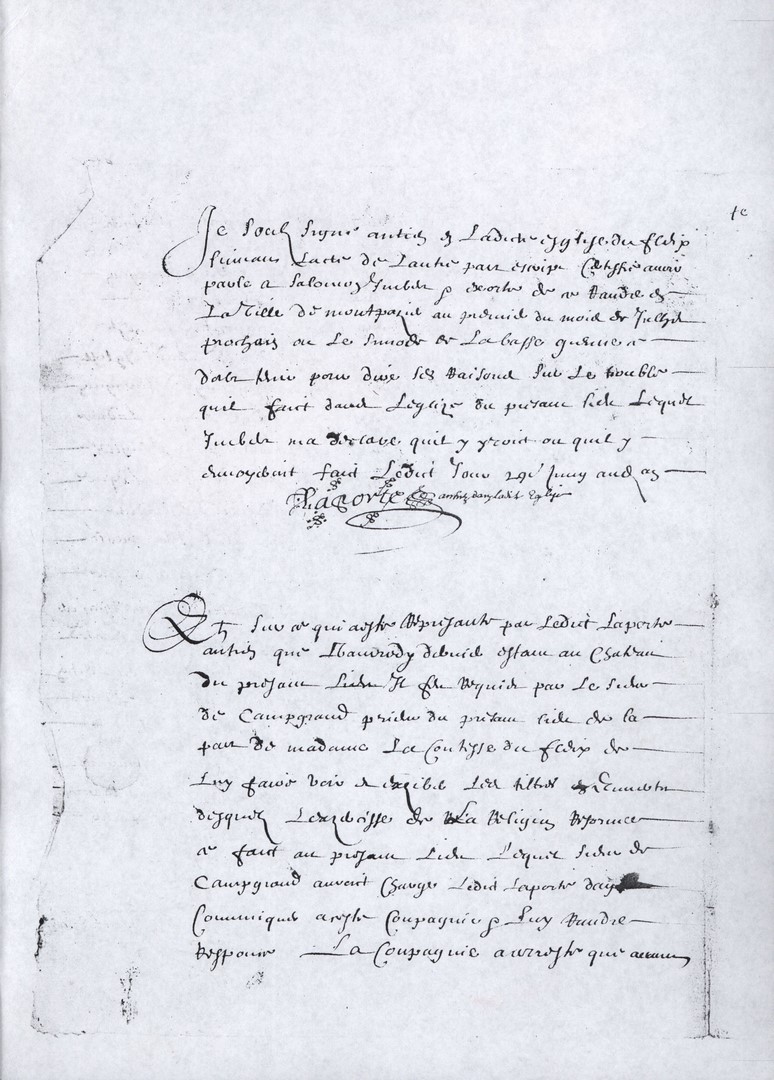 Je soubz signé antien en Ladicte esglise du fleix
suivant Lacte de Lautre part escript Certiffie avoir
parlé a Salomon Jmbert & exorté de se Randre en
La Ville de montpazié au premier du mois de Julhet
prochain ou Le sinode de La basse guienne se
doibt tenir pour dire ses Raisons sur Le trouble
quil faict dans Leglize du présant lieu Lequel
Jmbert ma declaré quil y yroit ou quil y
envoyeroit faict Ledict Jour 29e Juny aud an
Laporte antien dans Ladit Eglize
Et sur ce qui a esté Represanté par Ledict Laporte
antien que estant au Chateau
du présant Lieu Il fut Requis par Le sieur
de Campgrand du présant lieu de la
part de madame La Contesse du fleix de
Luy faire voir & exiber Les tiltres en
desquelz Lexercisse de La Religion Reformee
se faict au présant Lieu Lequel sieur de
Campgrand auroit Chargé Ledict Laporte dan
Communiquer a ceste Compagnie & Luy Randre
Responce La Compagnie a arresté que